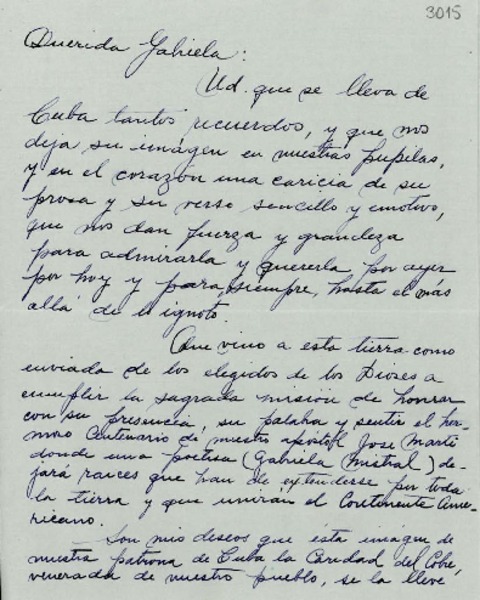 3015
Querida Gabriela:
Ud. que se lleva de
Cuba tantos recuerdos, y que nos
deja su imágen en nuestras pupilas,
y en el corazón una caricia de su
prosa y su verso sencillo y emotivo,
que nos dan fuerza y grandeza
para admirarla y quererla por ayer
por hoy y para siempre, hasta el más
allá de lo ignoto.
Que vino a esta tierra como
enviada de los elegidos de los Dioses a
cumplir la sagrada mision de honrar
con su presencia, su palabra y sentir el her-
moso Centenario de nuestro apóstol José Martí
donde una poetisa (Gabriela Mistral) de-
jará raices que han de extenderse por toda
la tierra y que uniran el Continente Ame-
ricano.
Son mis deseos que esta imagen de
nuestra patrona de Cuba la Caridad del Cobre,
venerada de nuestro pueblo, se la lleve